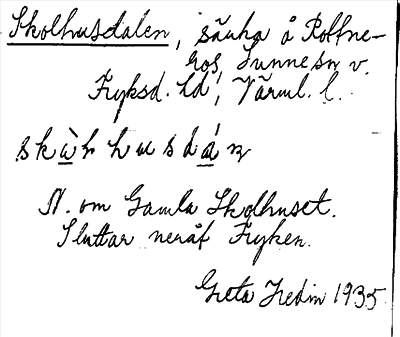 Skolhusdalen, sänka å Rolfne-
hos, Sunne sn v.
Fryksd. hd, Värml. l.
skàlhusdán
N. om Gamla Skolhuset.
Sluttar neråt Fryken.
Greta Hedin 1935